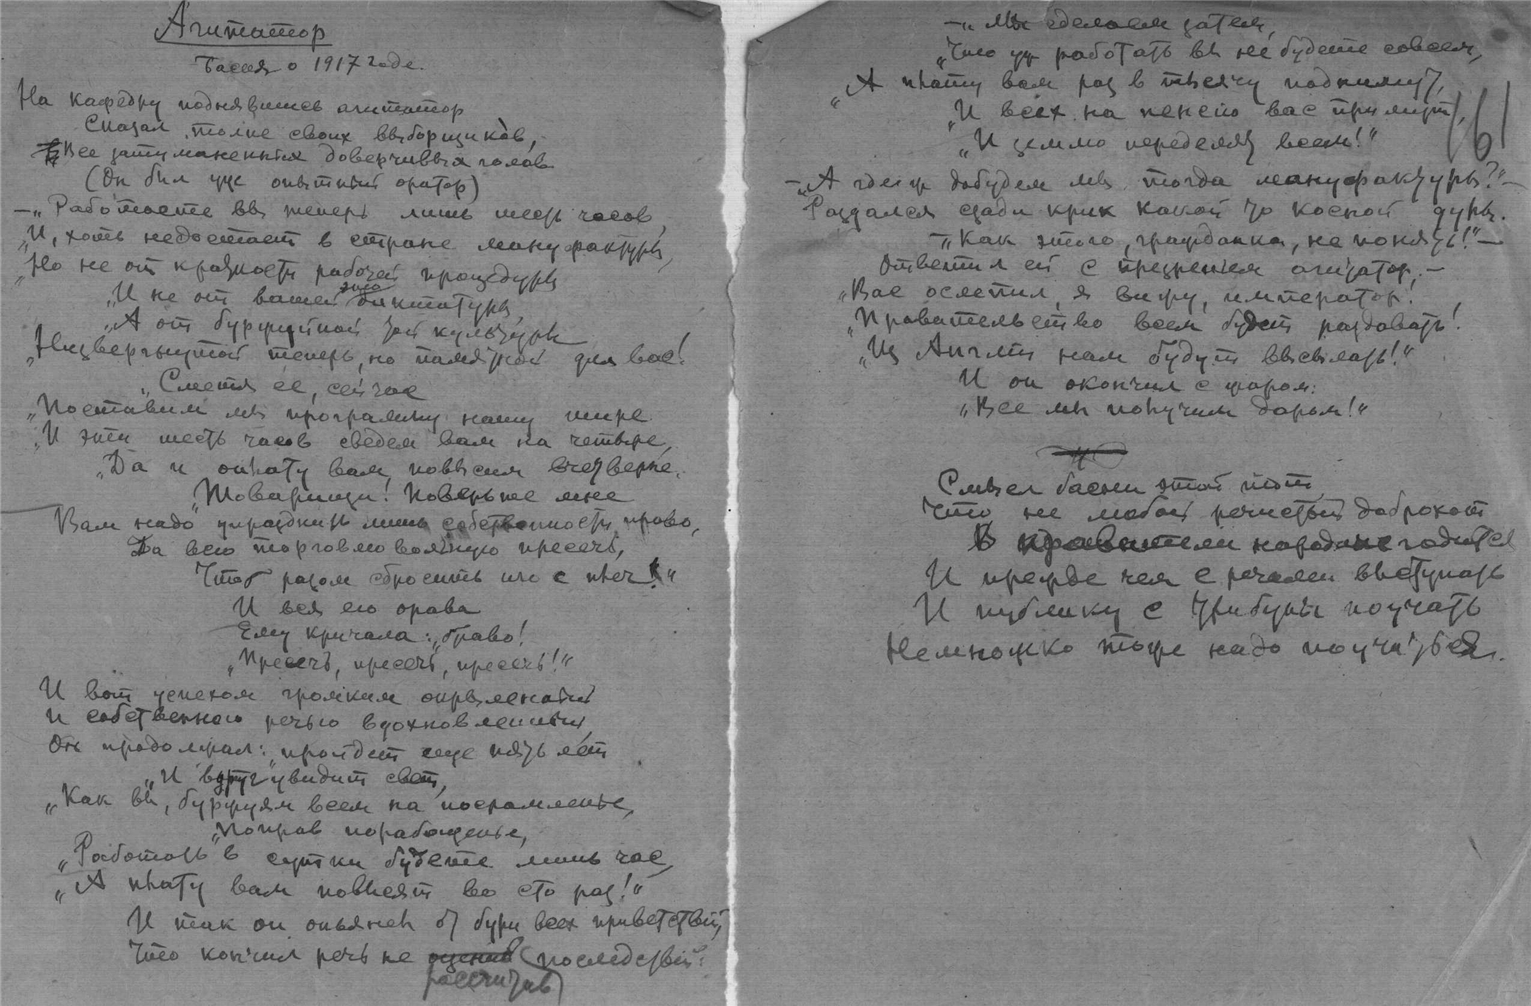 Агитатор
Басня о 1917 годе.
На кафедру поднявшись агитатор
Сказал толпе своих выборщиков,
Все затуманенных доверчивых голов
(Он был уже опытный оратор)
—„Работаете вы теперь лишь шесть часов,
„И, хоть недостает в стране мануфактуры,
„Но не от краткости рабочей процедуры
„И не от вашей диктатуры,
„А от буржуйной той культуры
„Низвергнутой теперь, но тяжкой для вас!
„Сметя ее, сейчас
„Поставим мы программу нашу шире
„И эти шесть часов сведем вам на четыре,
„Да и оплату вам повысим вчетверне.
„Товарищи! Поверьте мне
Вам надо упразднить лишь собственности право,
Да всю торговлю вольную пресечь,
Чтоб разом сбросить иго с плеч!“
И вся его орава
Ему кричала: „браво!
„Пресечь, пресечь, пресечь!“
И вот успехом громким окрыленный
И собственною речью вдохновленный,
Он продолжал: „пройдет еще пять лет
„И вдруг увидит свет,
„Как вы, буржуям всем на посрамленье,
„Поправ порабощенье,
„Работать в сутки будете лишь час,
„А плату вам повысят во сто раз!“
И так он опьянен от бури всех приветствий,
Что кончил речь не оценив последствий:
рассчитав
—„Мы сделаем затем,
„Что уж работать вы не будете совсем,
„А плату вам раз в тысячу поднимут,
„И всех на пенсию вас примут,
„И землю переделят всем!“
61
—„А где ж добудем мы тогда мануфактуры?“—
Раздался сзади крик какой то косной дуры.
—„Как этого, гражданка, не понять!“—
Ответил ей с презреньем агитатор,—
„Вас ослепил, я вижу, император!
„Правительство всем будет раздавать!
„Из Англии нам будут высылать!“
И он окончил с жаром:
„Все мы получим даром!“
Смысл басни этой тот,
Что не любой речистый доброхот
В правители народа не годится
И прежде чем с речами выступать
И публику с трибуны поучать
Немножко тоже надо поучиться.